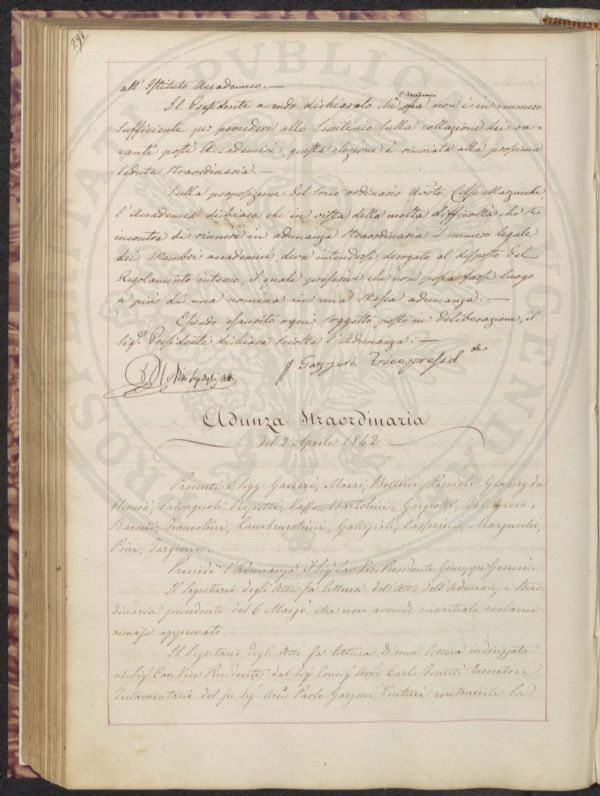 291
all' Istituto Accademico. —
Il Presidente avendo dichiarato che l'Accademia non è in numero
sufficiente per procedere allo scrutinio sulla collazione dei va-
canti posti Accademici, questa elezione è rinviata alla prossima
seduta straordinaria. —
Sulla proposizione del Socio ordinario Avv.to Celso Marzucchi,
l'Accademia dichiara che in vista della molta difficoltà che s'
incontra di riunire in adunanza straordinaria il numero legale
dei Membri accademici, deva intendersi derogato al disposto del
Regolamento interno, il quale prescrive che non possa farsi luogo
a più di una nomina in una stessa adunanza. —
Essendo esaurito ogni soggetto posto in deliberazione, il
Sig.r Presidente dichiara sciolta l'Adunanza. —
Gazzeri Vicepresid.te
Adunza Straordinaria
del 3 Aprile 1842
Presenti i Sigg. Gazzeri, Mazzi,
Salvagnoli, Taffo, Bartolini, Gargiolli, Del Greco,
Baroni, Francolini, Lambruschini, Gallizioli, Passerini, Marzucchi,
Pini, Targioni.
Presiede l'Adunanza il Sig. Cav. Vice Presidente Giuseppe Gazzeri.
Il Segretario degli Atti fa lettura dell'Atto dell'Adunanza Straor-
dinaria precedente del 6 Marzo che non avendo incontrato reclamo
rimase approvato.
Il Segretario degli Atti fa lettura di una lettera indirizzata
al Sig. Cav. Vice Presidente dal Sig. Cons. Avv. Carlo Esecutore
Testamentario del fu Sig. Paolo Garzoni Venturi contenente la